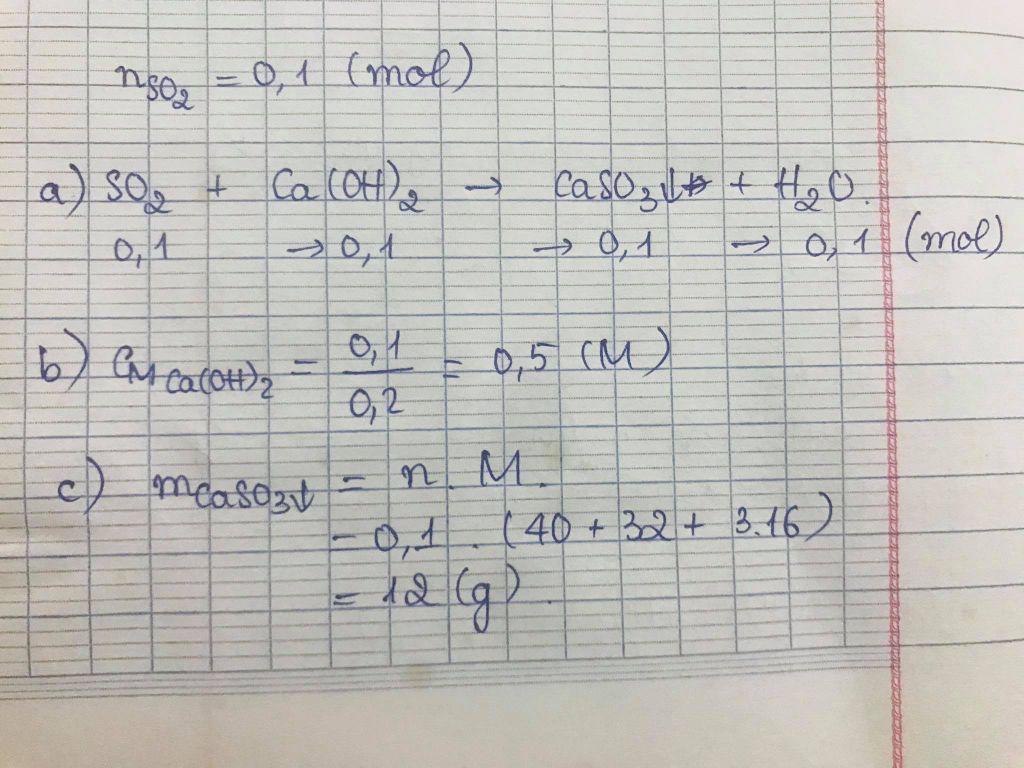 nSO₂ = 0,1 (mol)
a) SO₂ + Ca(OH)₂ → CaSO₃↓ + H₂O.
0,1 → 0,1 → 0,1 → 0,1 (mol)
b) CM Ca(OH)₂ = 0,1 / 0,2 = 0,5 (M)
c) mCaSO₃↓ = n. M.
= 0,1 . (40 + 32 + 3.16)
= 12 (g).